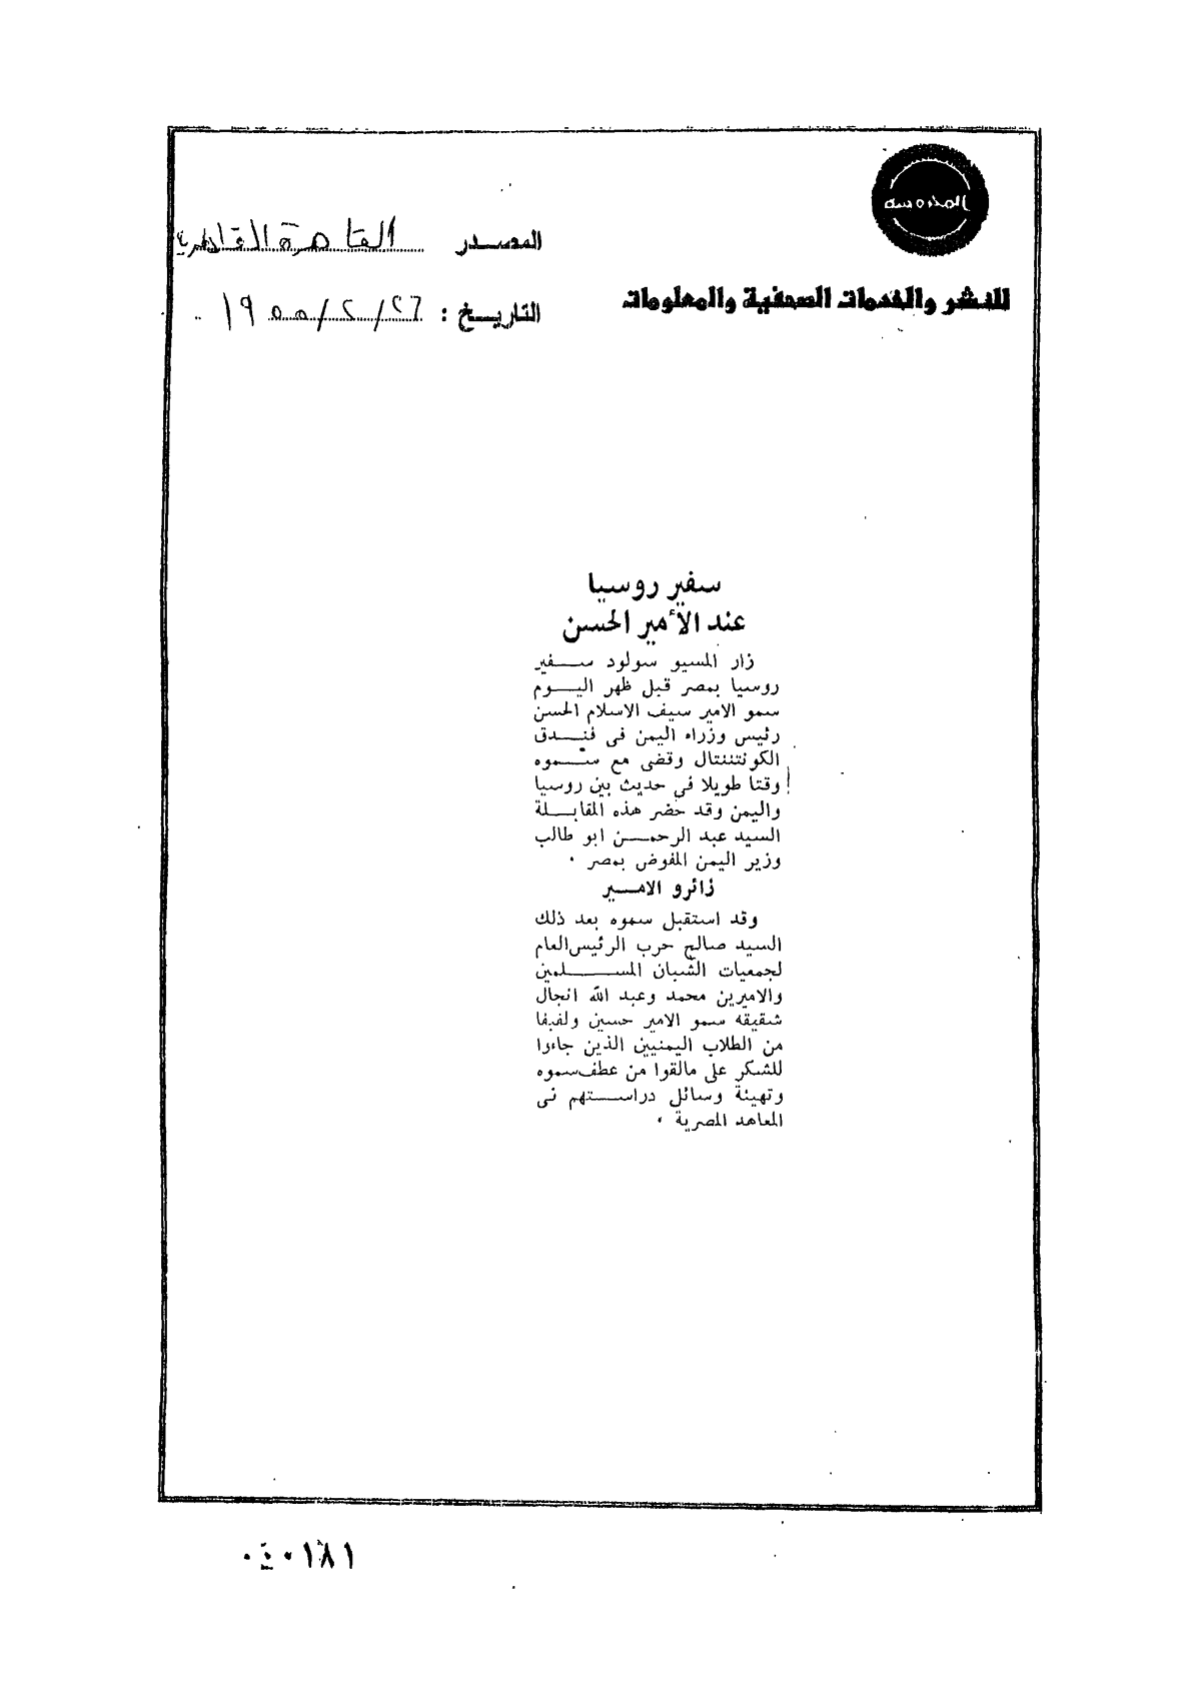 المحروسة
للنشر والخدمات الصحفية والمعلومات
المصدر القاهرة القاهرية
التاريخ : ٢٦/٢/١٩٥٥
سفير روسيا
عند الأمير الحسن
زار المسيو سولود سفير
روسيا بمصر قبل ظهر اليوم
سمو الامير سيف الاسلام الحسن
رئيس وزراء اليمن فى فندق
الكونتننتال وقضى مع سموه
وقتا طويلا في حديث بين روسيا
واليمن وقد حضر هذه المقابلة
السيد عبد الرحمن ابو طالب
وزير اليمن المفوض بمصر .
زائرو الامير
وقد استقبل سموه بعد ذلك
السيد صالح حرب الرئيس العام
لجمعيات الشبان المسلمين
والاميرين محمد وعبد الله انجال
شقيقه سمو الامير حسين ولفيفا
من الطلاب اليمنيين الذين جاءوا
للشكر على مالقوا من عطف سموه
وتهيئة وسائل دراستهم فى
المعاهد المصرية .
٠٤٠١٨١